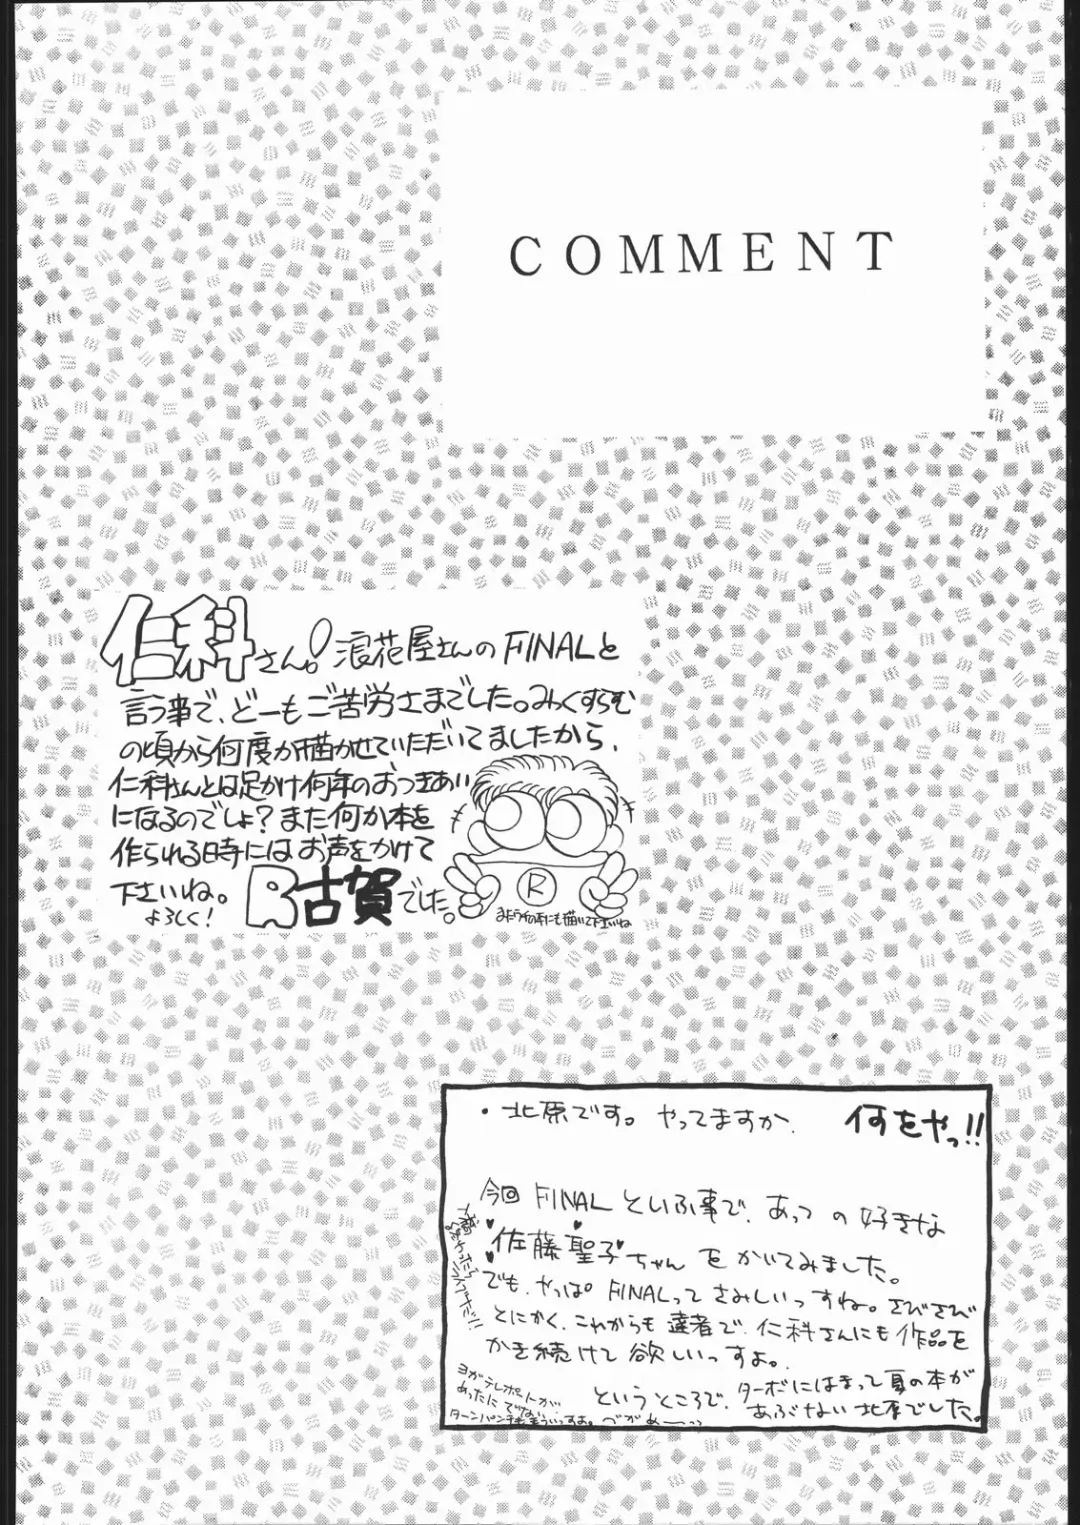 COMMENT
仁科さん!浪花屋さんのFINALと
言う事で、どーもご苦労さまでした。みくすちむ
の頃から何度か描かせていただいてましたから、
仁科さんとは足かけ何年のおつきあい
になるのでしょ?また何か本を
作られる時にはお声をかけて
下さいね。 R古賀でした。
よろしく!
R
・北原です。やってますか、 何をやっ!!
今回 FINAL といふ事で、あっしの好きな
佐藤聖子ちゃん をかいてみました。
でも、やっぱ。FINALって さみしいっすね。さびさび
とにかく、これからも達者で、仁科さんにも作品を
かき続けて欲しいっすよ。
というところで、ターボにはまって夏の本が
あぶない北原でした。
ヨガテレポートが